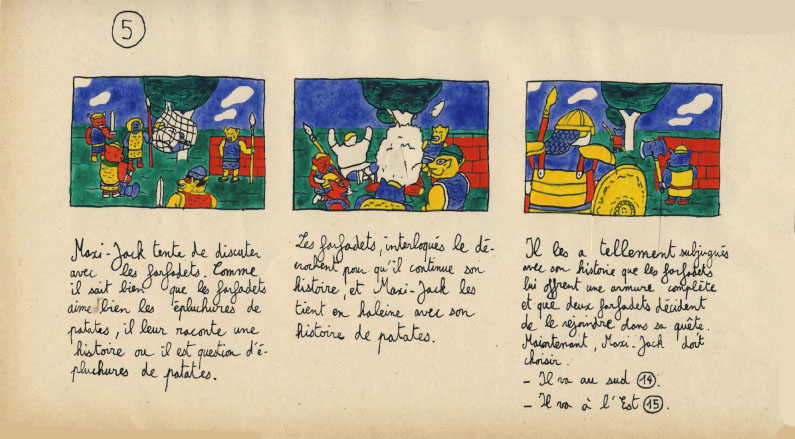 5
Maxi-Jack tente de discuter
avec les farfadets. Comme
il sait bien que les farfadets
aime bien les épluchures de
patates, il leur raconte une
histoire ou il est question d'é-
pluchures de patates.
Les farfadets, interloqués le dé-
crochent pour qu'il continue son
histoire, et Maxi-Jack les
tient en haleine avec son
histoire de patates.
Il les a tellement subjugués
avec son histoire que les farfadets
lui offrent une armure complète
et que deux farfadets décident
de le rejoindre dans sa quête.
Maintenant, Maxi-Jack doit
choisir.
- Il va au sud 14.
- Il va à l'Est 15.